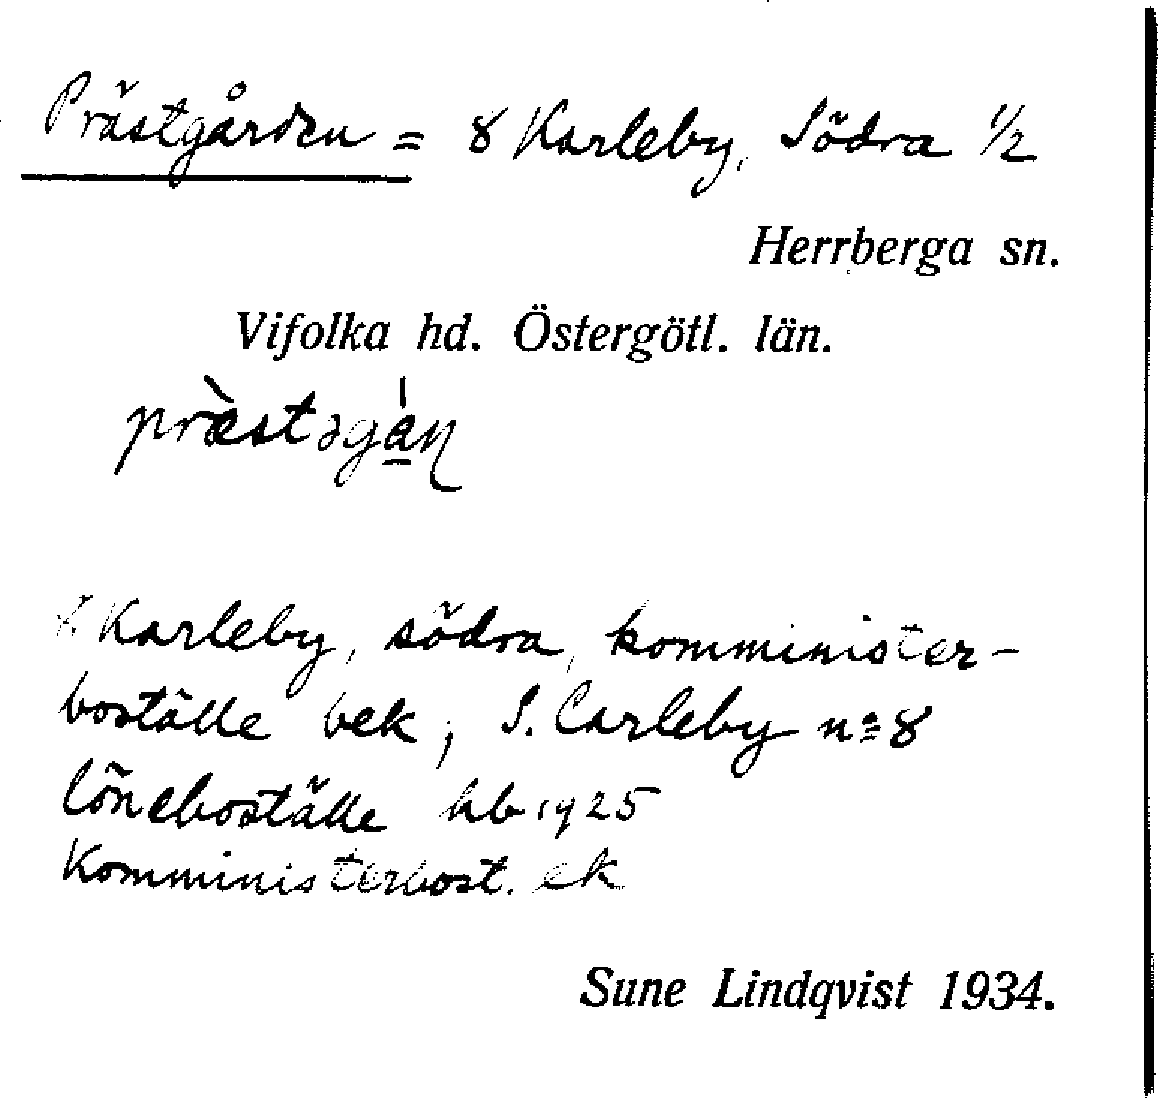 Prästgården = 8 Karleby, Södra 1/2
Herrberga sn.
Vifolka hd. Östergötl. län.
præ̀stəgá̱ɳ
Karleby, södra, komminister-
boställe bek; S. Carleby no 8
löneboställe hb 1925
Komministerbost. ek
Sune Lindqvist 1934.